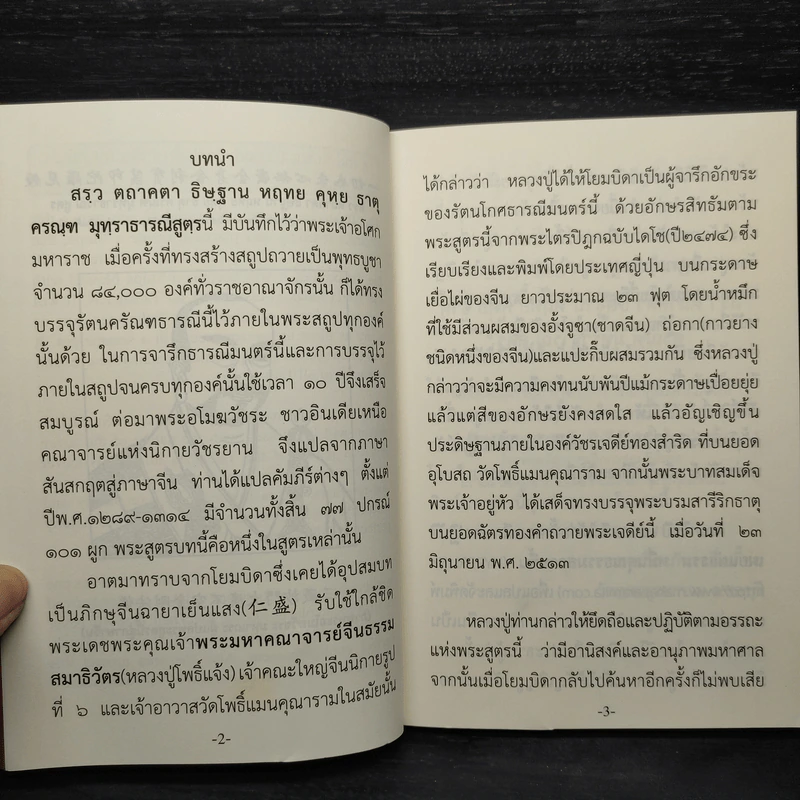 บทนำ
สรฺว ตถาคตา ธิษฺฐาน หฤทย คุหฺย ธาตุ
ครณฺฑ มุทฺราธารณีสูตฺรนี้ มีบันทึกไว้ว่าพระเจ้าอโศก
มหาราช เมื่อครั้งที่ทรงสร้างสถูปถวายเป็นพุทธบูชา
จำนวน ๘๔,๐๐๐ องค์ทั่วราชอาณาจักรนั้น ก็ได้ทรง
บรรจุรัตนครัณฑธารณีนี้ไว้ภายในพระสถูปทุกองค์
นั้นด้วย ในการจารึกธารณีมนตร์นี้และการบรรจุไว้
ภายในสถูปจนครบทุกองค์นั้นใช้เวลา ๑๐ ปีจึงเสร็จ
สมบูรณ์ ต่อมาพระอโมฆวัชระ ชาวอินเดียเหนือ
คณาจารย์แห่งนิกายวัชรยาน จึงแปลจากภาษา
สันสกฤตสู่ภาษาจีน ท่านได้แปลคัมภีร์ต่างๆ ตั้งแต่
ปีพ.ศ.๑๒๘๙-๑๓๑๔ มีจำนวนทั้งสิ้น ๗๗ ปกรณ์
๑๐๑ ผูก พระสูตรบทนี้คือหนึ่งในสูตรเหล่านั้น
อาตมาทราบจากโยมบิดาซึ่งเคยได้อุปสมบท
เป็นภิกษุจีนฉายาเย็นแสง(仁盛) รับใช้ใกล้ชิด
พระเดชพระคุณเจ้าพระมหาคณาจารย์จีนธรรม
สมาธิวัตร(หลวงปู่โพธิ์แจ้ง) เจ้าคณะใหญ่จีนนิกายรูป
ที่ ๖ และเจ้าอาวาสวัดโพธิ์แมนคุณารามในสมัยนั้น
-2-
ได้กล่าวว่า หลวงปู่ได้ให้โยมบิดาเป็นผู้จารึกอักขระ
ของรัตนโกศธารณีมนตร์นี้ ด้วยอักษรสิทธัมตาม
พระสูตรนี้จากพระไตรปิฎกฉบับไดโช(ปี๒๔๗๔) ซึ่ง
เรียบเรียงและพิมพ์โดยประเทศญี่ปุ่น บนกระดาษ
เยื่อไผ่ของจีน ยาวประมาณ ๒๓ ฟุต โดยน้ำหมึก
ที่ใช้มีส่วนผสมของอั้งจูซา(ชาดจีน) ถ่อกา(กาวยาง
ชนิดหนึ่งของจีน)และแปะกิ๊บผสมรวมกัน ซึ่งหลวงปู่
กล่าวว่าจะมีความคงทนนับพันปีแม้กระดาษเปื่อยยุ่ย
แล้วแต่สีของอักษรยังคงสดใส แล้วอัญเชิญขึ้น
ประดิษฐานภายในองค์วัชรเจดีย์ทองสำริด ที่บนยอด
อุโบสถ วัดโพธิ์แมนคุณาราม จากนั้นพระบาทสมเด็จ
พระเจ้าอยู่หัว ได้เสด็จทรงบรรจุพระบรมสารีริกธาตุ
บนยอดฉัตรทองคำถวายพระเจดีย์นี้ เมื่อวันที่ ๒๓
มิถุนายน พ.ศ. ๒๕๑๓
หลวงปู่ท่านกล่าวให้ยึดถือและปฏิบัติตามอรรถะ
แห่งพระสูตรนี้ ว่ามีอานิสงค์และอานุภาพมหาศาล
จากนั้นเมื่อโยมบิดากลับไปค้นหาอีกครั้งก็ไม่พบเสีย
-3-